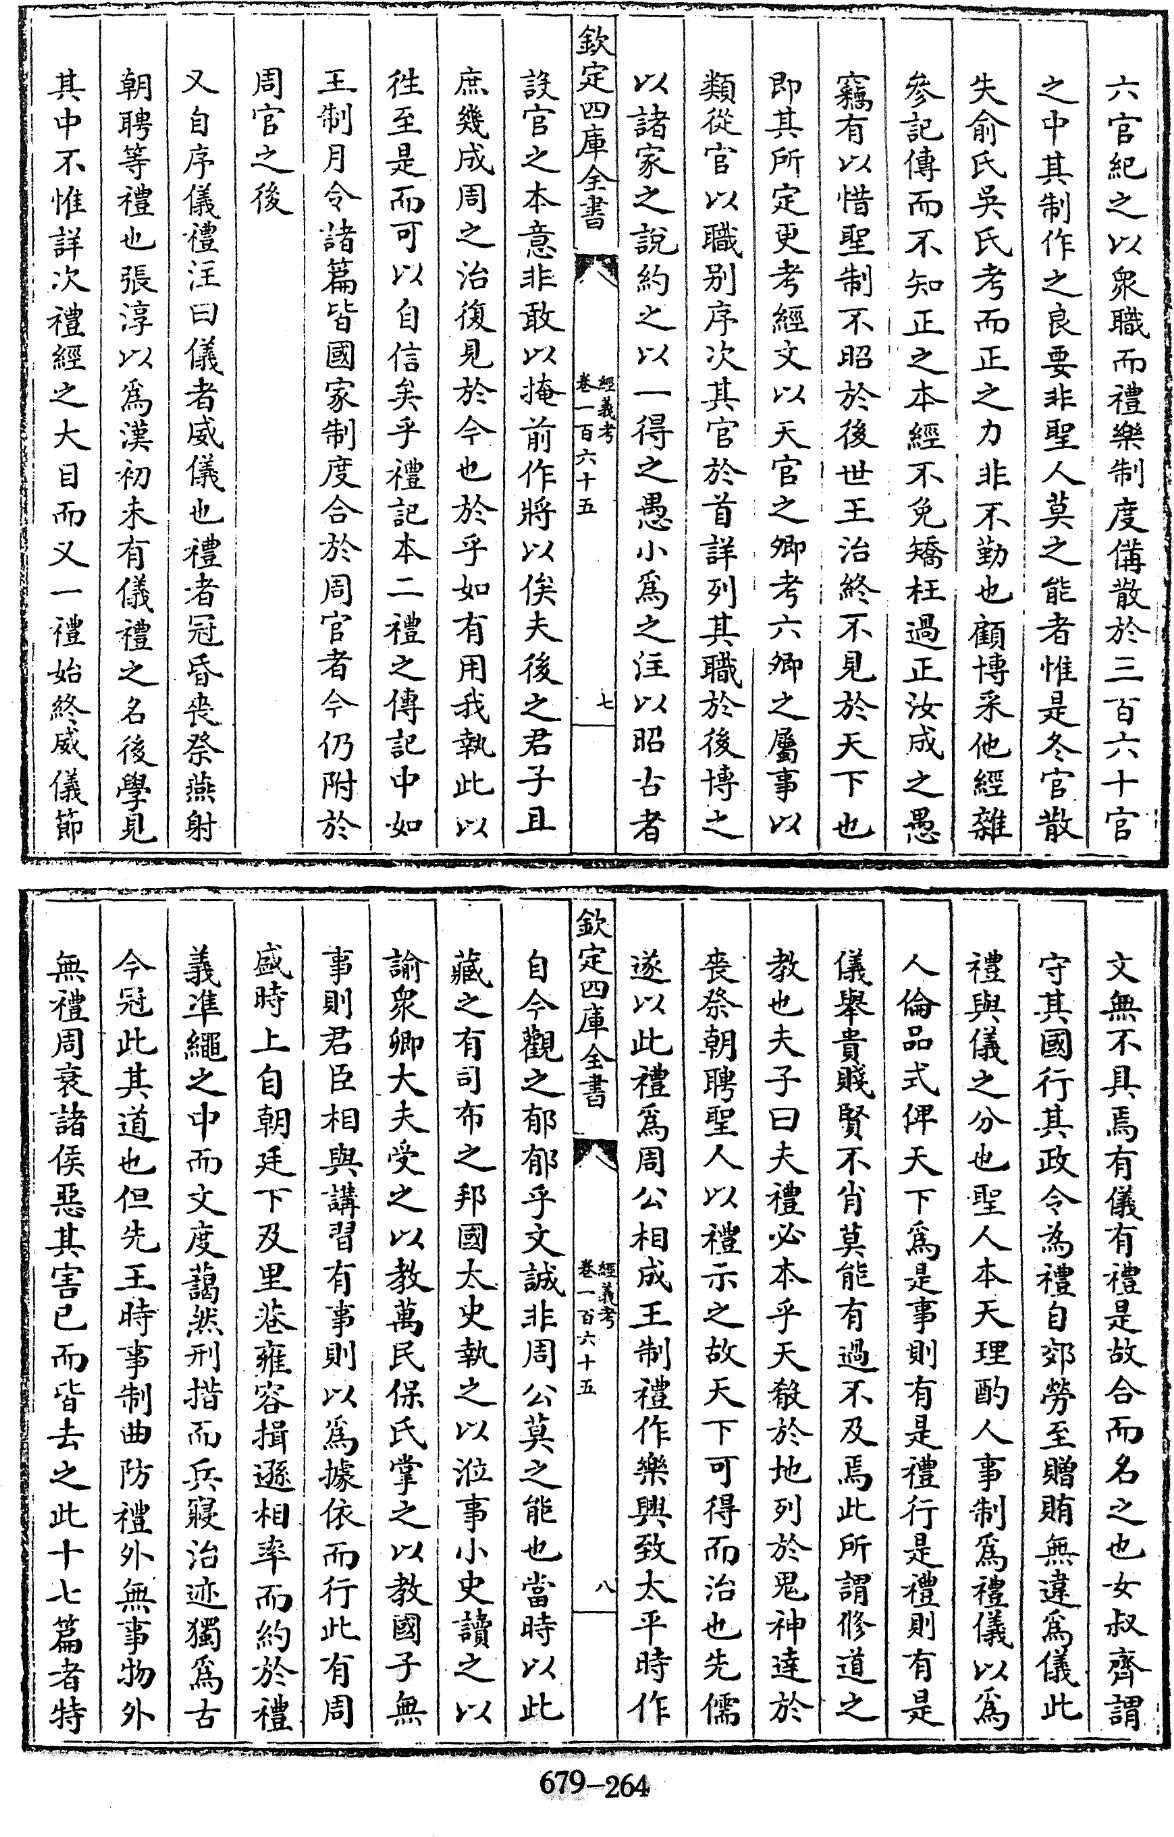 六官紀之以衆職而禮樂制度備散於三百六十官
之中其制作之良要非聖人莫之能者惟是冬官散
失俞氏吳氏考而正之力非不勤也顧博采他經雜
參記傳而不知正之本經不免矯枉過正汝成之愚
竊有以惜聖制不昭於後世王治終不見於天下也
即其所定更考經文以天官之卿考六卿之屬事以
類從官以職别序次其官於首詳列其職於後博之
以諸家之說約之以一得之愚小爲之注以昭古者
欽定四庫全書
經義考
卷一百六十五
七
設官之本意非敢以掩前作將以俟夫後之君子且
庶幾成周之治復見於今也於乎如有用我執此以
徃至是而可以自信矣乎禮記本二禮之傳記中如
王制月令諸篇皆國家制度合於周官者今仍附於
周官之後
又自序儀禮注曰儀者威儀也禮者冠昏喪祭燕射
朝聘等禮也張淳以爲漢初未有儀禮之名後學見
其中不惟詳次禮經之大目而又一禮始終威儀節
文無不具焉有儀有禮是故合而名之也女叔齊謂
守其國行其政令為禮自郊勞至贈賄無違爲儀此
禮與儀之分也聖人本天理酌人事制爲禮儀以爲
人倫品式俾天下爲是事則有是禮行是禮則有是
儀舉貴賤賢不肖莫能有過不及焉此所謂修道之
教也夫子曰夫禮必本乎天殽於地列於鬼神達於
喪祭朝聘聖人以禮示之故天下可得而治也先儒
遂以此禮爲周公相成王制禮作樂興致太平時作
欽定四庫全書
經義考
卷一百六十五
八
自今觀之郁郁乎文誠非周公莫之能也當時以此
藏之有司布之邦國太史執之以涖事小史讀之以
諭衆卿大夫受之以教萬民保氏掌之以教國子無
事則君臣相與講習有事則以爲據依而行此有周
盛時上自朝廷下及里巷雍容揖遜相率而約於禮
義凖繩之中而文度藹然刑措而兵寢治迹獨爲古
今冠此其道也但先王時事制曲防禮外無事物外
無禮周衰諸侯惡其害已而皆去之此十七篇者特
679-264